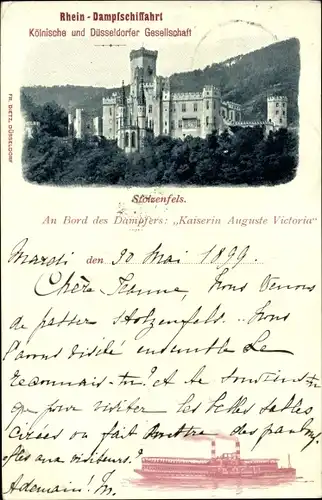 Rhein - Dampfschiffahrt
Kölnische und Düsseldorfer Gesellschaft
FR. DIETZ, DÜSSELDORF
Stolzenfels.
An Bord des Dampfers: „Kaiserin Auguste Victoria"
Mardi den 30 Mai 1899.
Chère Jeanne, Nous venons
de passer Stolzenfels... Nous
l'avons visité ensemble Le
reconnais-tu? et te souviens-tu
que pour visiter les belles salles
cirées on fait mettre des pantou-
fles aux visiteurs?
A demain! M.